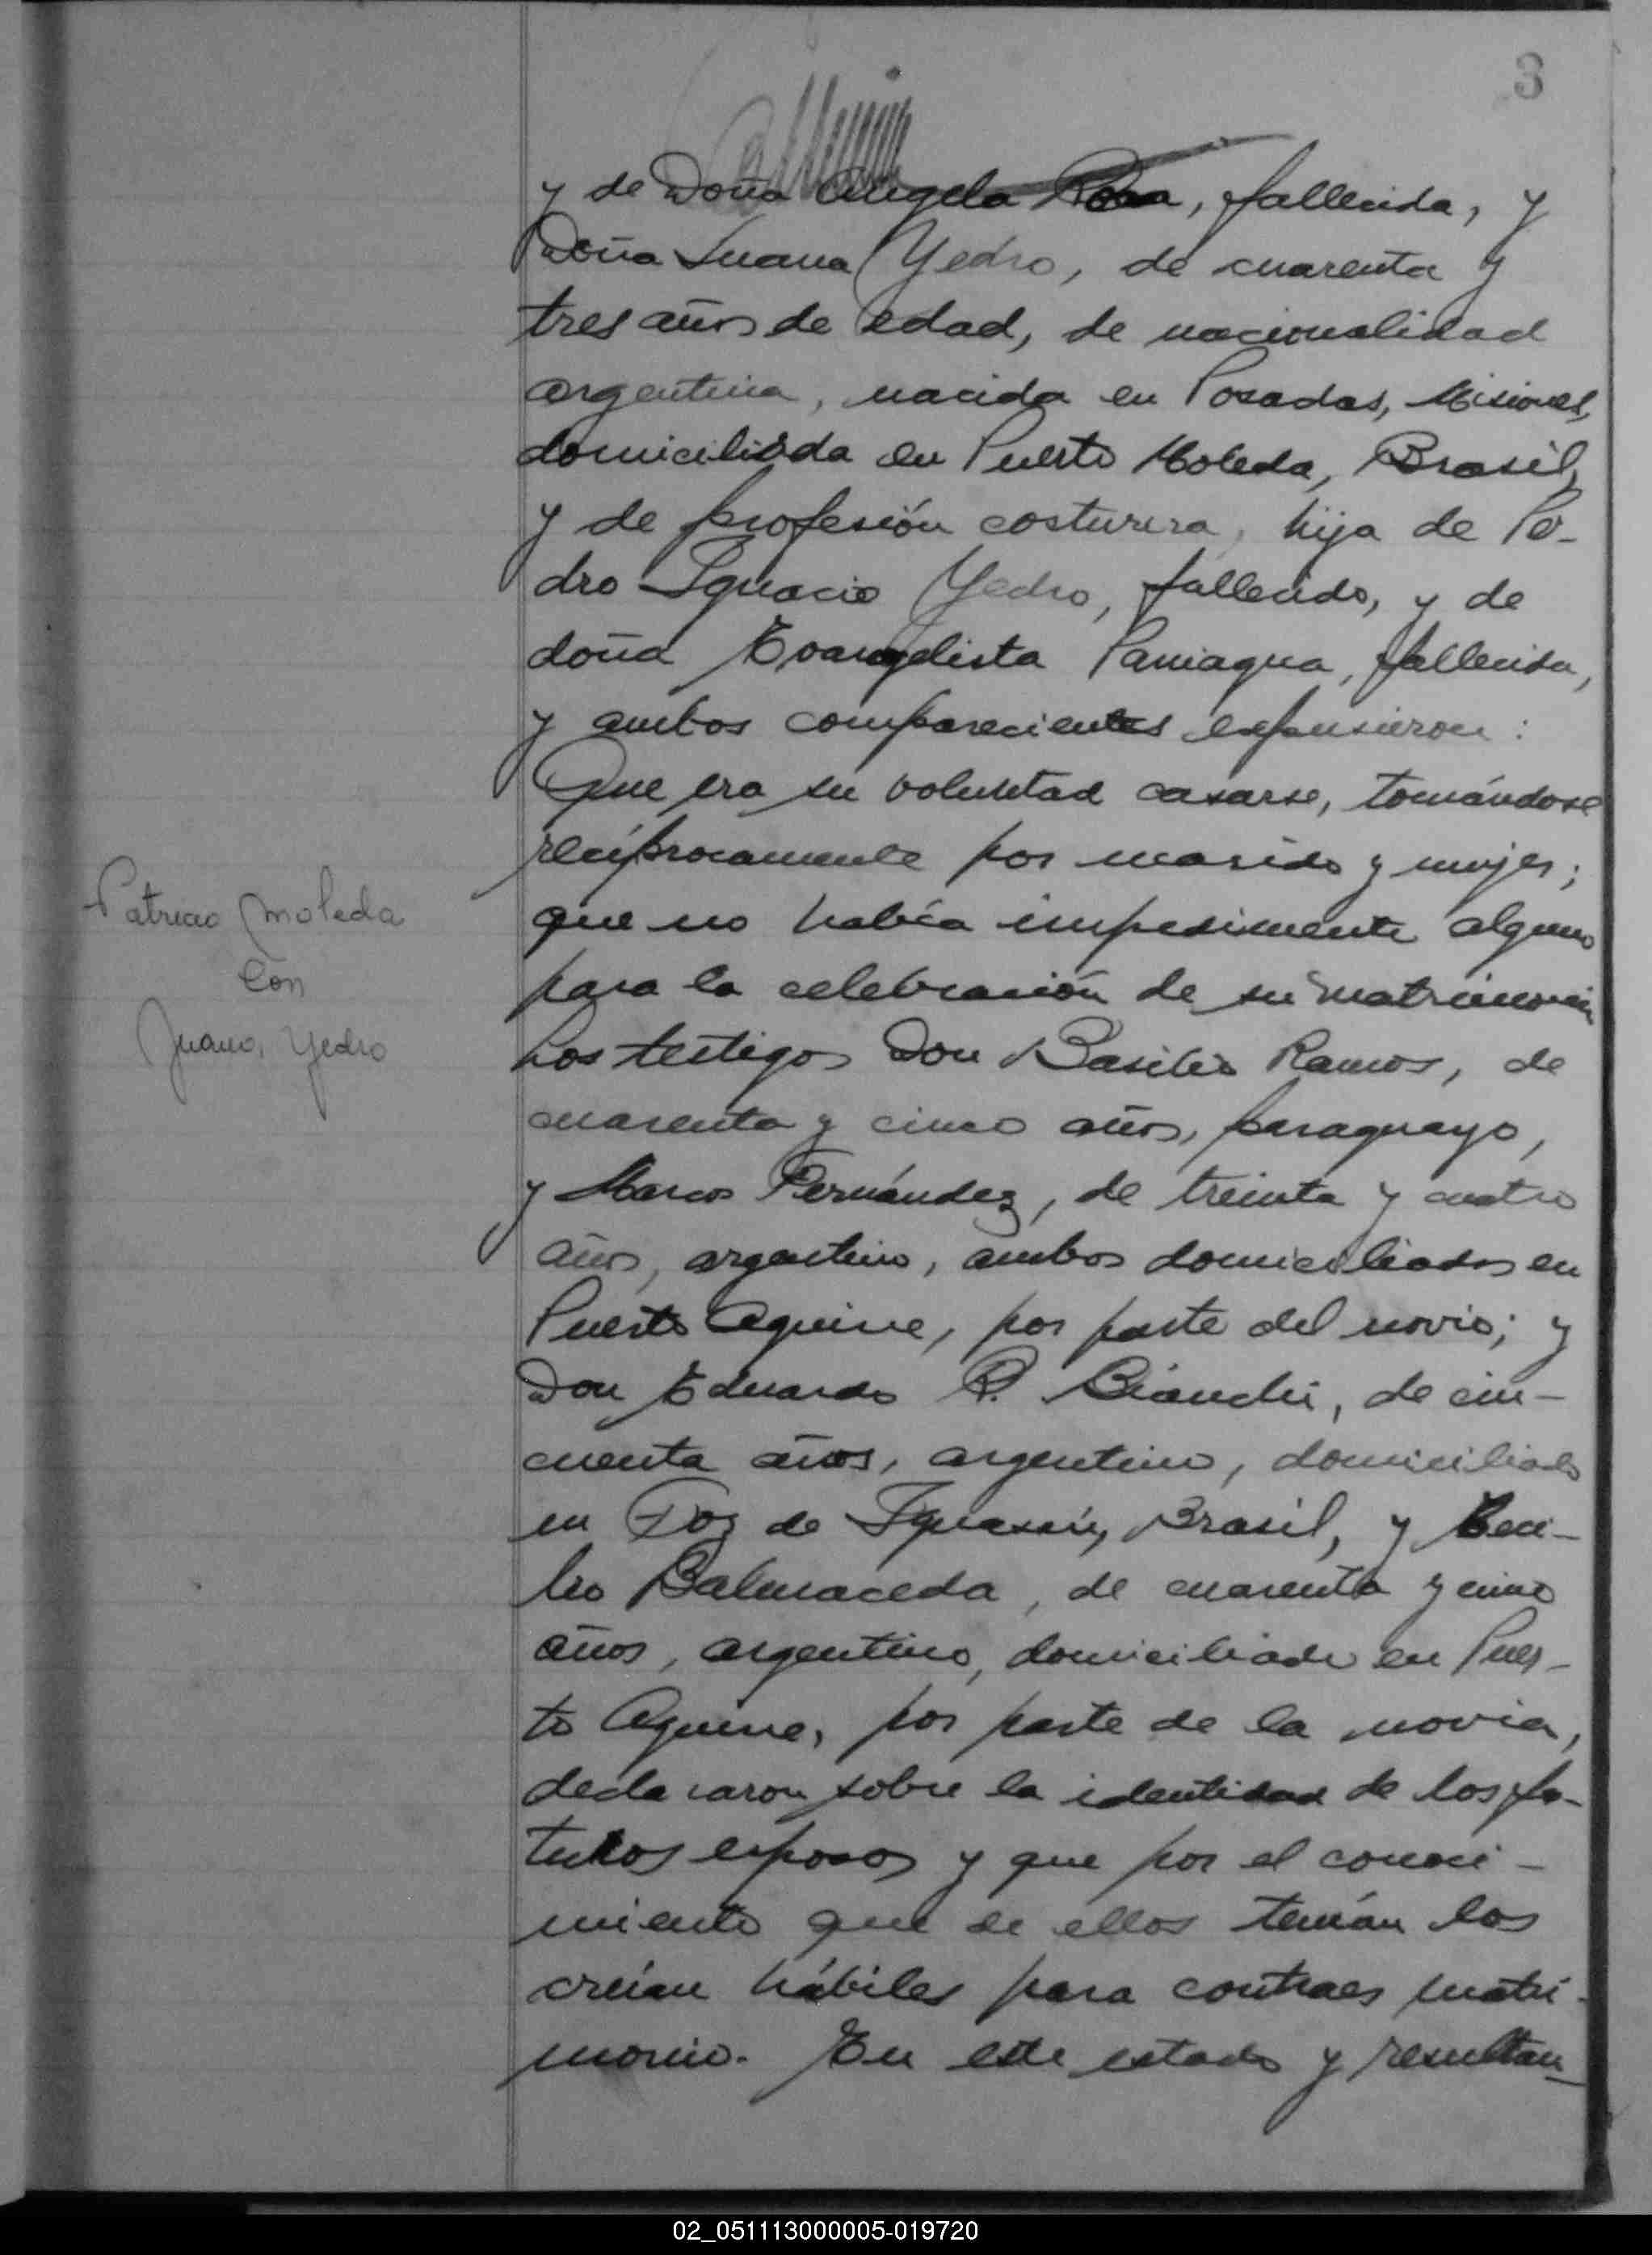 3
y de Doña Angela Rosa, fallecida, y
Doña Juana Yedro, de cuarenta y
tres años de edad, de nacionalidad
argentina, nacida en Posadas, Misiones,
domiciliada en Puerto Moleda, Brasil,
y de profesión costurera, hija de Pe-
dro Ignacio Yedro, fallecido, y de
doña Evangelista Paniagua, fallecida,
y ambos comparecientes expusieron:
Que era su voluntad casarse, tomándose
recíprocamente por marido y mujer;
que no había impedimento alguno
para la celebración de su matrimonio
Los testigos Don Basilio Ramos, de
cuarenta y cinco años, paraguayo,
y Marcos Fernández, de treinta y cuatro
años, argentino, ambos domiciliados en
Puerto Aguirre, por parte del novio; y
Don Eduardo R. Bianchi, de cin-
cuenta años, argentino, domiciliado
en Foz de Iguassú, Brasil, y
Balmaceda, de cuarenta y cinco
años, argentino, domiciliado en Puer-
to Aguirre, por parte de la novia,
declararon sobre la identidad de los fu-
turos esposos y que por el conoci-
miento que de ellos tenían los
creían hábiles para contraer matri-
monio. En este estado y resultan-
Patricio Moleda
Con
Juana Yedro
02_051113000005-019720